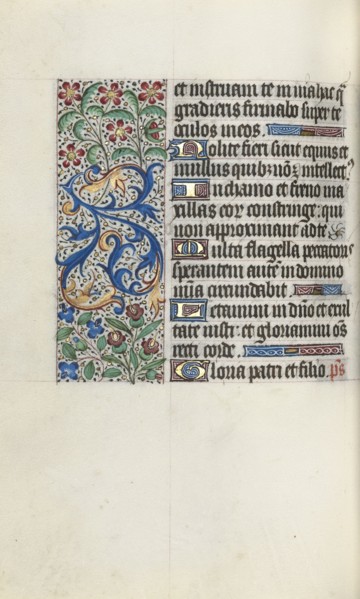 et instruam te in via hac q̃
gradieris firmabo super te
oculos meos.
Nolite fieri sicut equus et
mulus quib: nõ ẽ intellect,
In chamo et freno ma
xillas eoɼ constringe: qui
non approximant ad te
Multa flagella peccatoris
sperantem autẽ in domino
mĩa circundabit.
Letamini in dño et exul
tate iusti: et gloriamini oẽs
recti corde.
Gloria patri et filio. p̃s